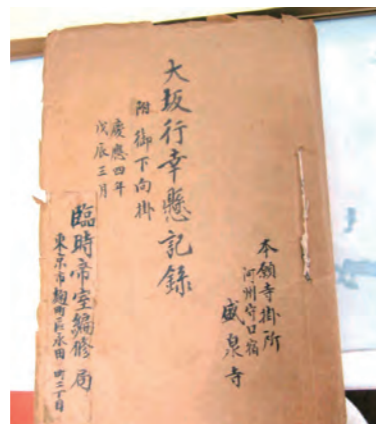 本願寺掛所
河州守口宿
盛泉寺
大坂行幸懸記録
附御下向掛
慶應四年
戊辰三月
臨時帝室編修局
東京市麹町区永田町二丁目